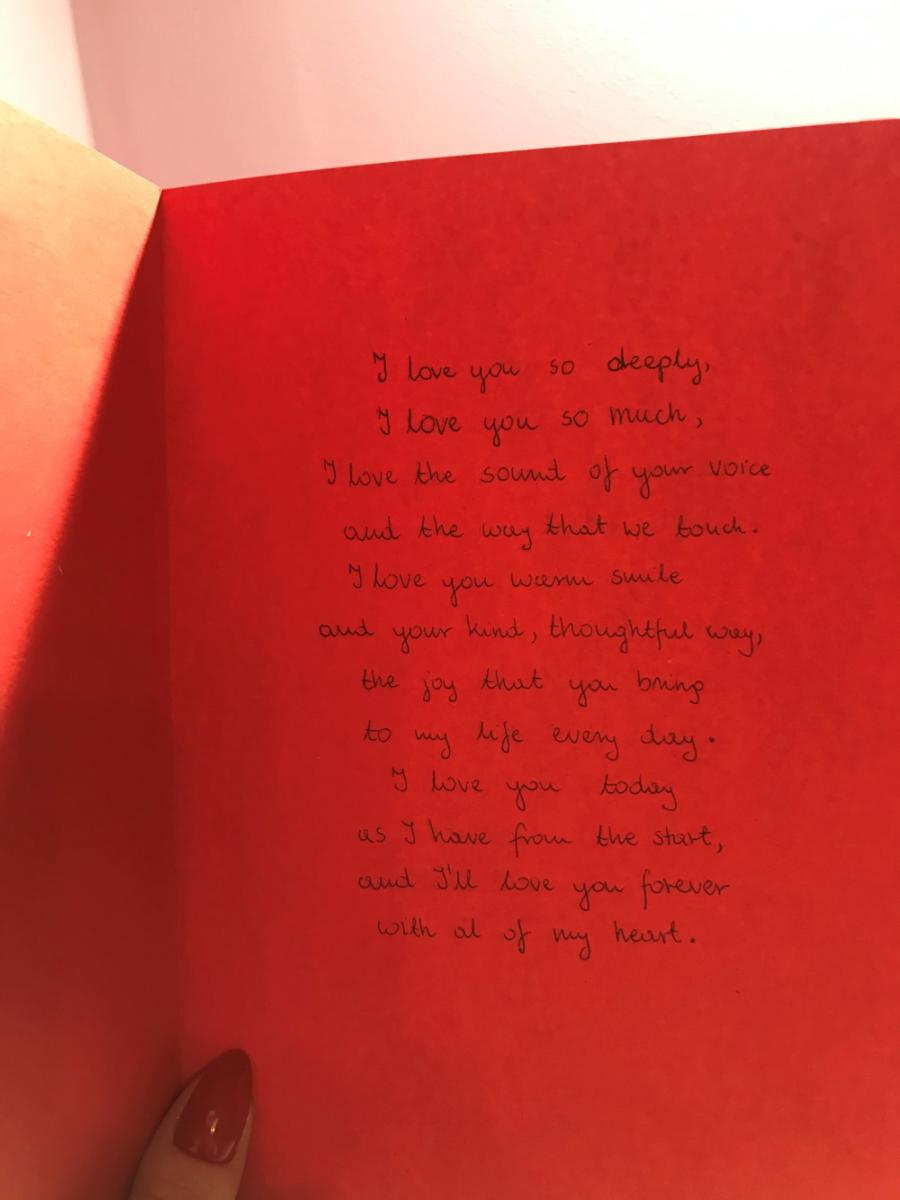 I love you so deeply,
I love you so much,
I love the sound of your voice
and the way that we touch.
I love you warm smile
and your kind, thoughtful way,
the joy that you bring
to my life every day.
I love you today
as I have from the start,
and I'll love you forever
with al of my heart.